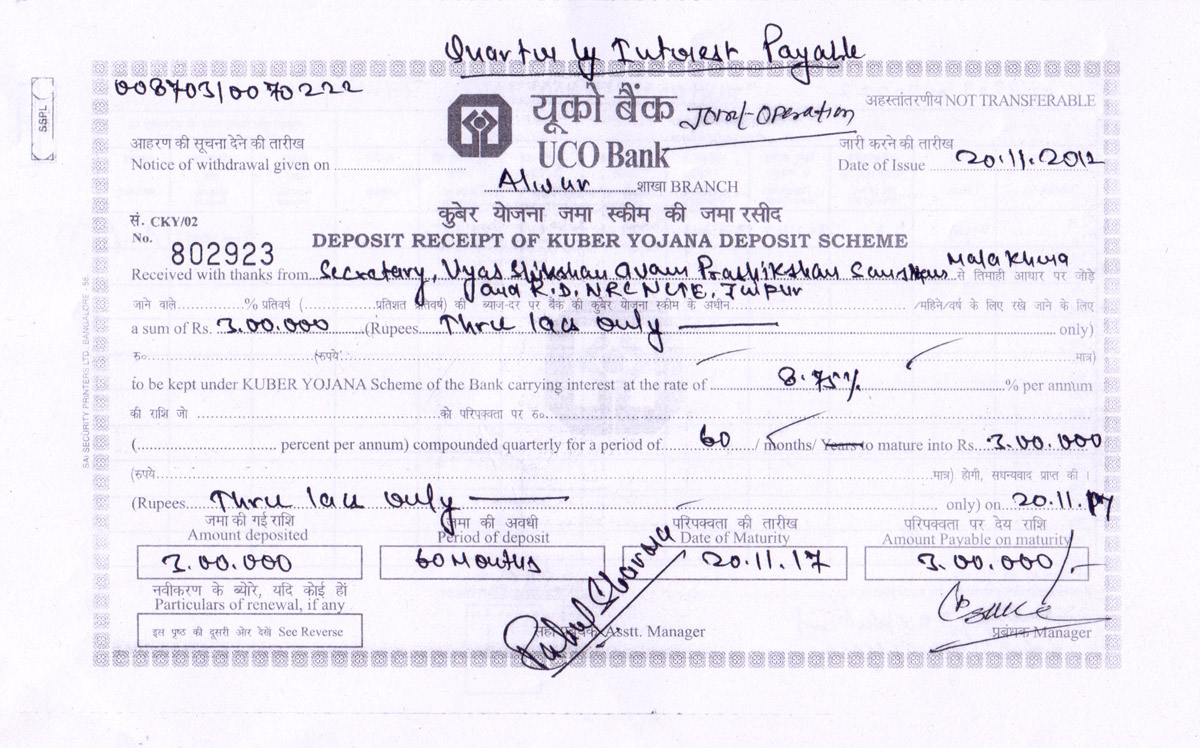 Quarterly Interest Payable
00870310070222
SSPL
यूको बैंक
Joint-Operation
अहस्तांतरणीय NOT TRANSFERABLE
UCO Bank
आहरण की सूचना देने की तारीख
Notice of withdrawal given on
जारी करने की तारीख
Date of Issue 20.11.2012
Alwar शाखा BRANCH
सं. CKY/02
कुबेर योजना जमा स्कीम की जमा रसीद
No. 802923
DEPOSIT RECEIPT OF KUBER YOJANA DEPOSIT SCHEME
Received with thanks from Secretary, Vyas Shikshan avam Prashikshan Sansthan Malakhera से तिमाही आधार पर जोड़े
and R.D. NRC NCTE, Jaipur
जाने वाले % प्रतिवर्ष ( प्रतिशत प्रतिवर्ष) की ब्याज-दर पर बैंक की कुबेर योजना स्कीम के अधीन /महिने/वर्ष के लिए रखे जाने के लिए
a sum of Rs. 3.00.000 (Rupees Three lacs only only)
रु० (रुपये मात्र)
to be kept under KUBER YOJANA Scheme of the Bank carrying interest at the rate of 8.75% % per annum
की राशि जो को परिपक्वता पर रु०
( percent per annum) compounded quarterly for a period of 60 / months/ Years to mature into Rs. 3.00.000
(रुपये मात्र) होगी, सधन्यवाद प्राप्त की ।
(Rupees Three lacs only only) on 20.11.17
जमा की गई राशि जमा की अवधी परिपक्वता की तारीख परिपक्वता पर देय राशि
Amount deposited Period of deposit Date of Maturity Amount Payable on maturity
3.00.000 60 Months 20.11.17 3.00.000/-
नवीकरण के ब्योरे, यदि कोई हों
Particulars of renewal, if any
इस पृष्ठ की दूसरी ओर देखें See Reverse
Asstt. Manager
प्रबंधक Manager
SAI SECURITY PRINTERS LTD. BANGALORE - 58